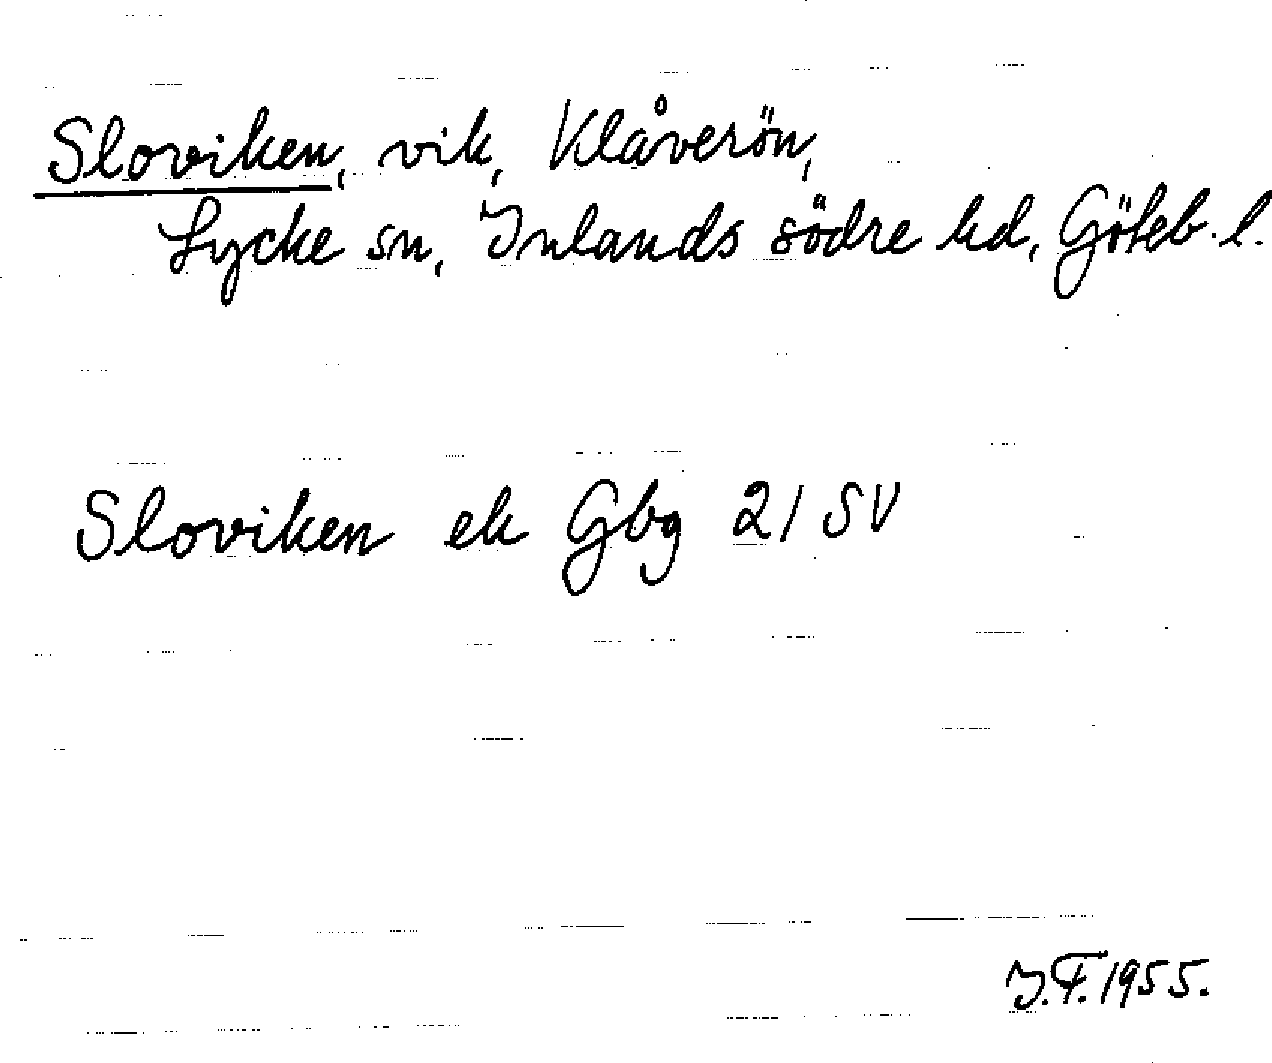 Sloviken, vik, Klåverön,
Lycke sn, Inlands södre hd, Göteb. l.
Sloviken ek Gbg 21 SV
I.F. 1955.